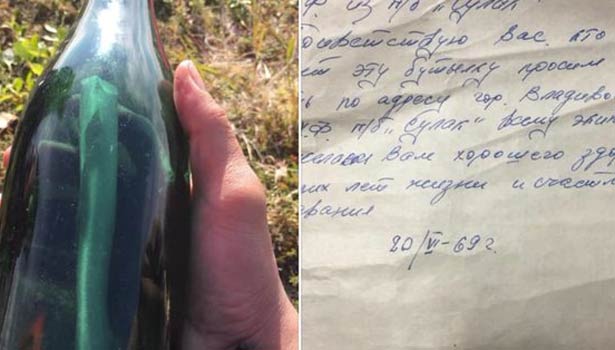 Ф из п/б "Сулак"
ветствую Вас, кто
ет эту бутылку просим
по адресу гор. Владиво
Ф п/б "Сулак" всему экип
Вам хорошего здо
их лет жизни и счаст
20/VI-69г.